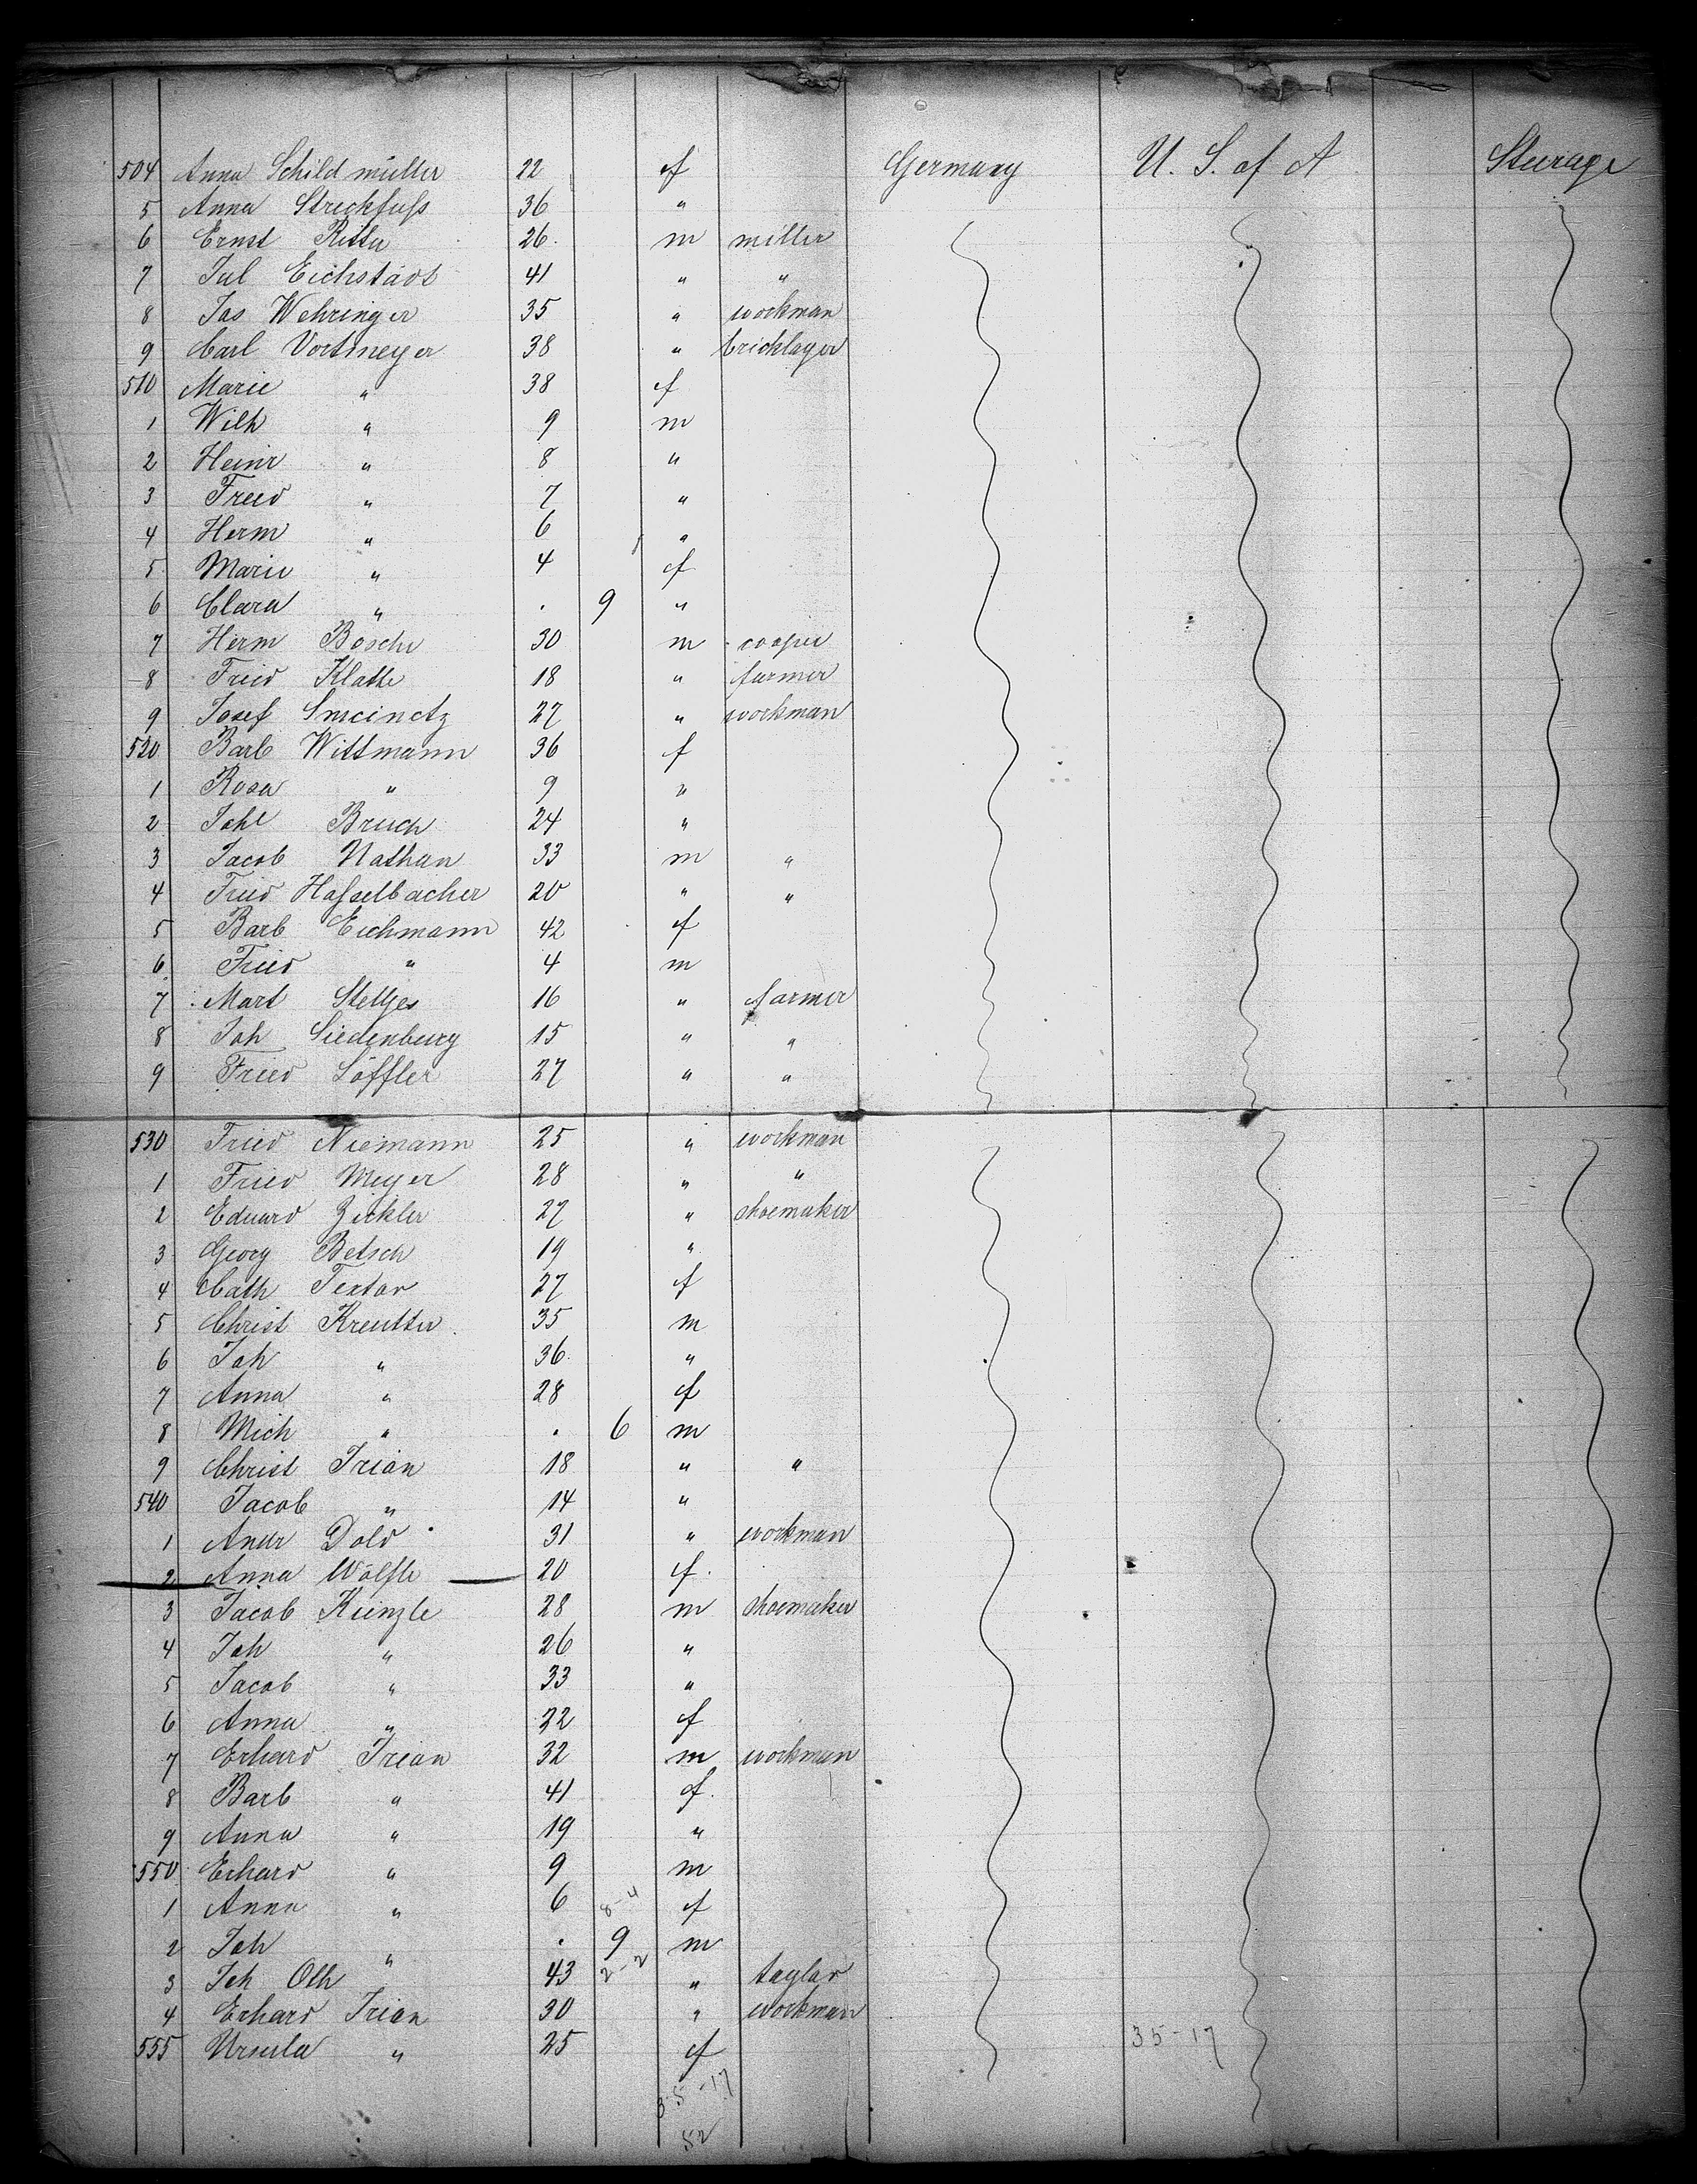 504 Anna Schildmüller 22 f Germany U. S. of A Steerage
5 Anna Streckfuss 36 "
6 Ernst Ritter 26 m miller
7 Jul Eichstädt 41 " "
8 Jos Wehringer 35 " workman
9 Carl Vortmeyer 38 " bricklayer
510 Marie " 38 f
1 Wilh " 9 m
2 Heinr " 8 "
3 Fried " 7 "
4 Herm " 6 "
5 Marie " 4 f
6 Clara " . 9 "
7 Herm Bosche 30 m cooper
8 Fried Klatte 18 " farmer
9 Josef 27 " workman
520 Barb Wittmann 36 f
1 Rosa " 9 "
2 Bruch 24 "
3 Jacob Nathan 33 m "
4 Fried Hasselbacher 20 " "
5 Barb Eichmann 42 f
6 Fried " 4 m
7 Mart Steltjes 16 " farmer
8 Joh Siedenburg 15 " "
9 Fried Löffler 27 " "
530 Fried Niemann 25 " workman
1 Fried Meyer 28 " "
2 Eduard Zickler 27 " shoemaker
3 Georg Betsch 19 "
4 Cath Textor 27 f
5 Christ Kreutter 35 m
6 Joh " 36 "
7 Anna " 28 f
8 Mich " . 6 m
9 Christ Irion 18 " "
540 Jacob " 14 "
1 Andr Dold 31 " workman
2 Anna Wölfle 20 f
3 Jacob Künzle 28 m shoemaker
4 Joh " 26 "
5 Jacob " 33 "
6 Anna " 32 f
7 Erhard Irion 32 m workman
8 Barb " 41 f
9 Anna " 19 "
550 Erhard " 9 m
1 Anna " 6 8-4 f
2 Joh " . 9 m
3 Joh Oth 43 2-2 " taylor
4 Erhard Irion 30 " workman
555 Ursula " 25 f 35-17
35-17
52